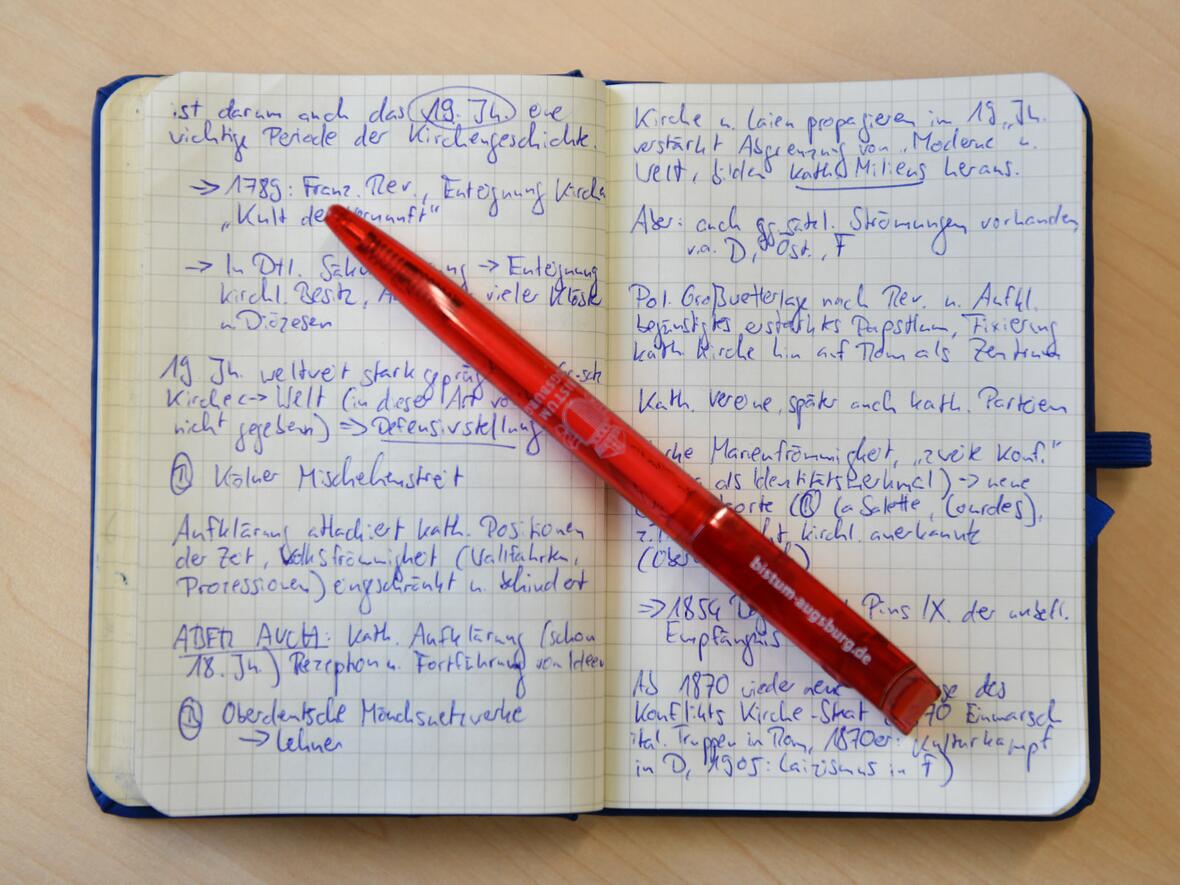 ist darum auch das 19. Jh. eine
wichtige Periode der Kirchengeschichte.
→ 1789: Franz. Rev., Enteignung Kirche
„Kult der Vernunft"
→ In Dtl. → Enteignung
kirchl. Besitz, vieler Klöster
u. Diözesen
19. Jh. weltweit stark
Kirche <-> Welt (in dieser Art
nicht gegeben) => Defensivstellung
Kölner Mischehenstreit
Aufklärung attackiert kath. Positionen
der Zeit, Volksfrömmigkeit (Wallfahrten,
Prozessionen) eingschränkt u. behindert
ABER AUCH: Kath. Aufklärung (schon
18. Jh.) Rezeption u. Fortführung von Ideen
Oberdeutsche Mönchsnetzwerke
→ Lehrer
Kirche u. Laien propagieren im 19. Jh.
verstärkt Abgrenzung von Moderne u.
Welt, bilden kath. Milieus heraus.
Aber: auch Strömungen vorhanden,
v.a. D, Öst., F
Pol. Großwetterlage nach Rev. u. Aufkl.
begünstigt erstarktes Papsttum, Fixierung
kath. Kirche hin auf Rom als Zentrum
Kath. Vereine, später auch kath. Parteien
Marienfrömmigkeit, „zweite Konf."
als Identitätsmerkmal) → neue
(La Salette, Lourdes),
kirchl. anerkannte
=> 1854 Pius IX. der unbefl.
Empfängnis
Ab 1870 wieder neue des
Konflikts Kirche-Staat Einmarsch
ital. Truppen in Rom, 1870er: Kulturkampf
in D, 1905: Laizismus in F)
BISTUM AUGSBURG
bistum-augsburg.de